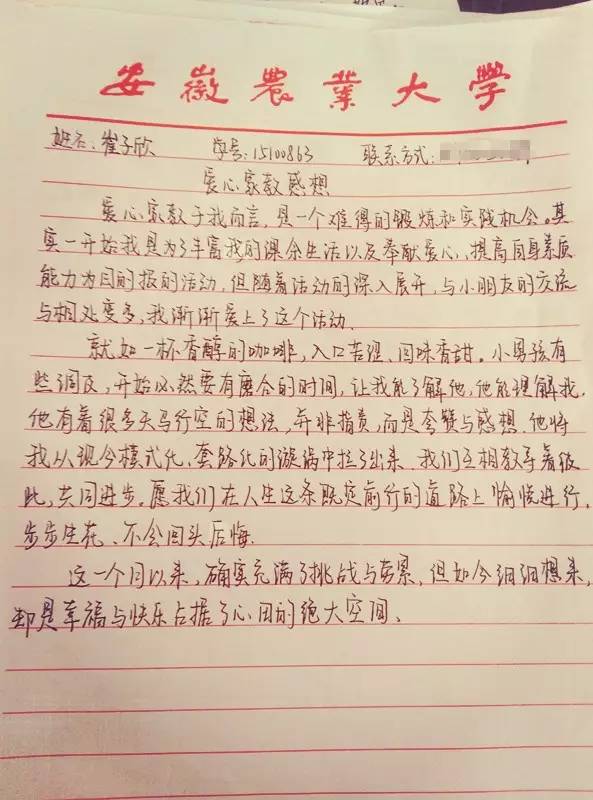 安徽農業大學
姓名:崔子欣 学号:15100863 联系方式:
爱心家教感想
爱心家教于我而言,是一个难得的锻炼和实践机会。其
实一开始我是为了丰富我的课余生活以及奉献爱心,提高自身素质
能力为目的报的活动,但随着活动的深入展开,与小朋友的交流
与相处变多,我渐渐爱上了这个活动.
就如一杯香醇的咖啡,入口苦涩、回味香甜。小男孩有
些调皮,开始必然要有磨合的时间,让我能了解他,他能理解我.
他有着很多天马行空的想法,并非指责,而是夸赞与感想.他将
我从现今模式化、套路化的漩涡中拉了出来.我们互相教导着彼
此,共同进步。愿我们在人生这条既定前行的道路上愉悦进行,
步步生花、不会回头后悔.
这一个月以来,确实充满了挑战与劳累,但如今细细想来,
却是幸福与快乐占据了心田的绝大空间.